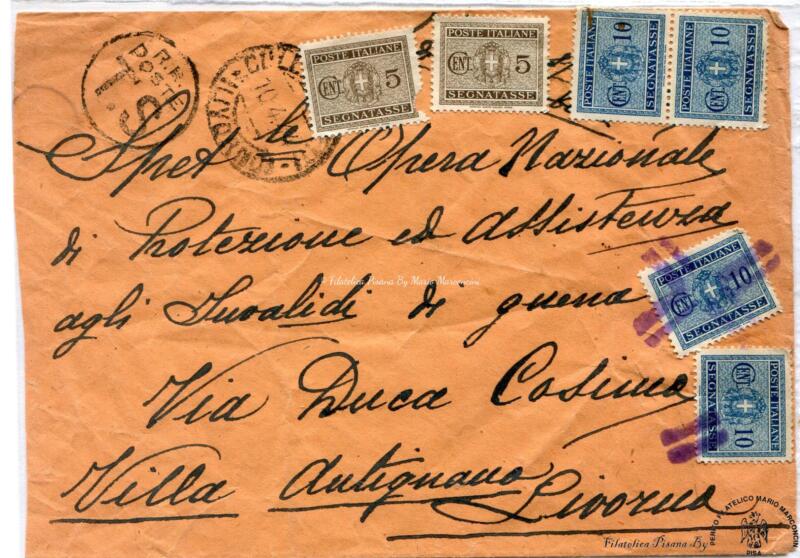 R.R. POSTE
T.S
POSTE ITALIANE
CENT. 5
SEGNATASSE
POSTE ITALIANE
CENT. 5
SEGNATASSE
POSTE ITALIANE
CENT. 10
SEGNATASSE
POSTE ITALIANE
CENT. 10
SEGNATASSE
Spet le Opera Nazionale
di Protezione ed Assistenza
agli Invalidi di guerra
POSTE ITALIANE
CENT. 10
SEGNATASSE
Filatelica Pisana By Mario Marconcini
Via Duca Cosimo
POSTE ITALIANE
CENT. 10
SEGNATASSE
Villa Antignano Livorno
Filatelica Pisana By
PERITO FILATELICO MARIO MARCONCINI
PISA